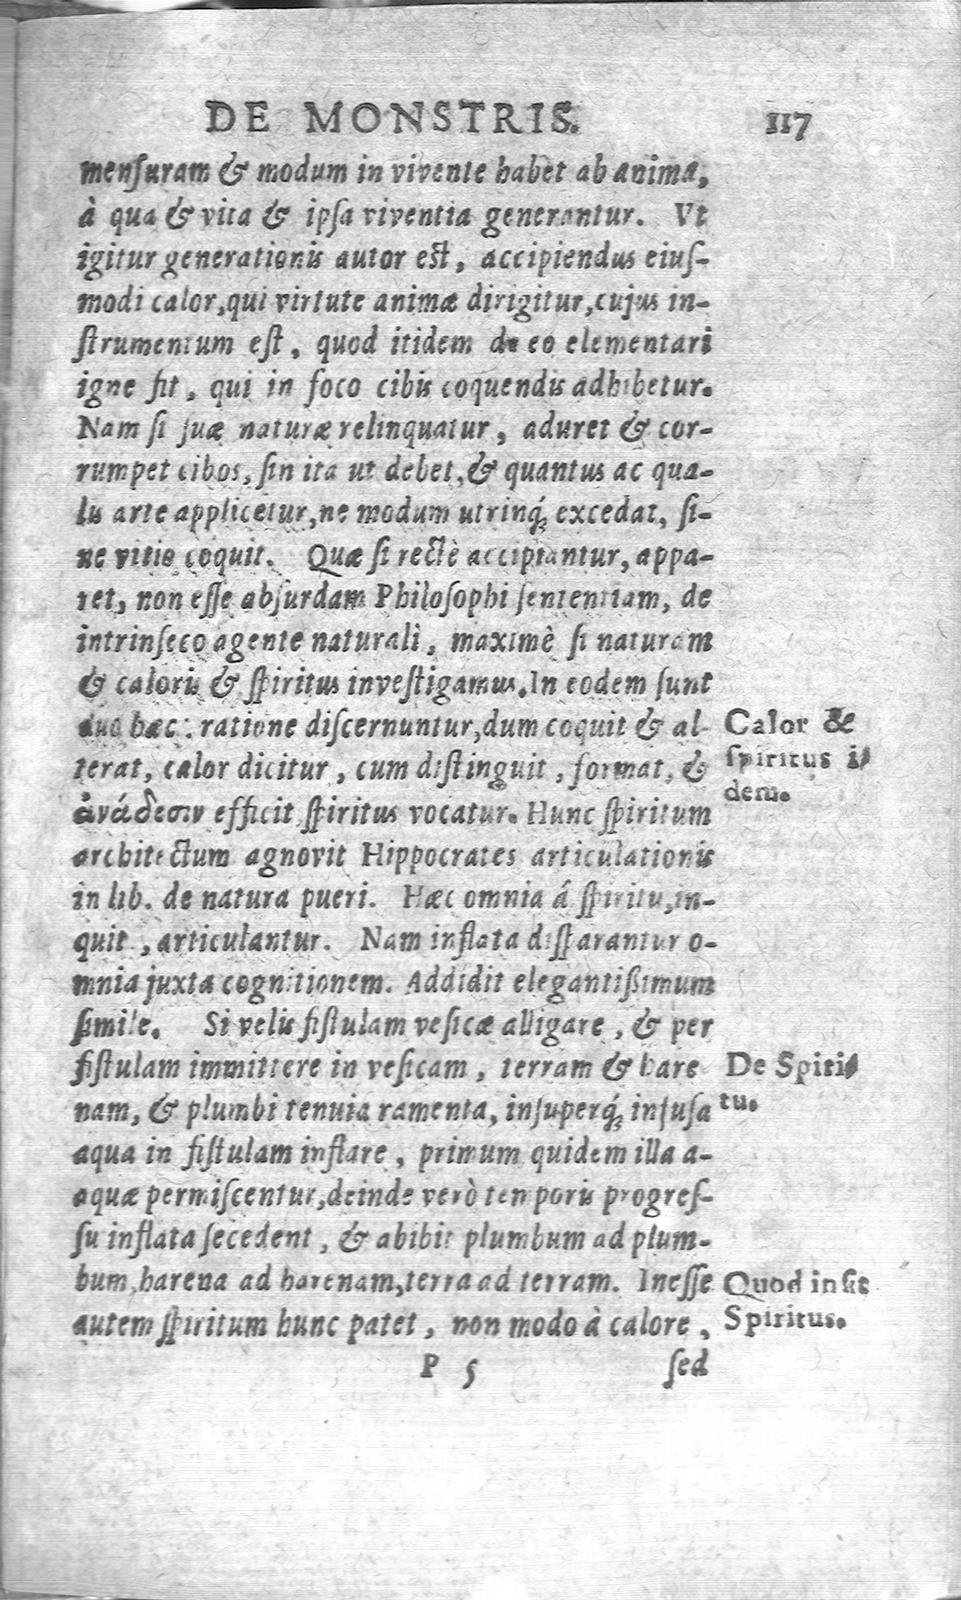 DE MONSTRIS. 117
menſuram & modum in vivente habet ab anima,
à qua & vita & ipſa viventia generantur. Vt
igitur generationis autor est, accipiendus eiuſ-
modi calor, qui virtute animæ dirigitur, cujus in-
ſtrumentum eſt, quod itidem de eo elementari
igne fit, qui in foco cibis coquendis adhibetur.
Nam ſi ſuæ naturæ relinquatur, aduret & cor-
rumpet cibos, ſin ita ut debet, & quantus ac qua-
lis arte applicetur, ne modum utrinq́; excedat, ſi-
ne vitio coquit. Quæ ſi rectè accipiantur, appa-
ret, non eſſe abſurdam Philoſophi ſententiam, de
intrinſeco agente naturali, maximè ſi naturam
& caloris & ſpiritus inveſtigamus. In eodem ſunt
duo hæc: ratione diſcernuntur, dum coquit & al-
terat, calor dicitur, cum diſtinguit, format, &
ἀνάδεσιν efficit ſpiritus vocatur. Hunc ſpiritum
architectum agnovit Hippocrates articulationis
in lib. de natura pueri. Hæc omnia á ſpiritu, in-
quit, articulantur. Nam inflata diſparantur o-
mnia juxta cognitionem. Addidit elegantiſſimum
ſimile. Si velis fiſtulam veſicæ alligare, & per
fiſtulam immittere in veſicam, terram & hare
nam, & plumbi tenuia ramenta, inſuperq́; infuſa
aqua in fiſtulam inflare, primum quidem illa a-
aquæ permiſcentur, deinde verò temporis progreſ-
ſu inflata ſecedent, & abibit plumbum ad plum-
bum, harena ad harenam, terra ad terram. Ineſſe
autem ſpiritum hunc patet, non modo à calore,
P 5 ſed
Calor &
ſpiritus i-
dem.
De Spiri-
tu.
Quod inſit
Spiritus.